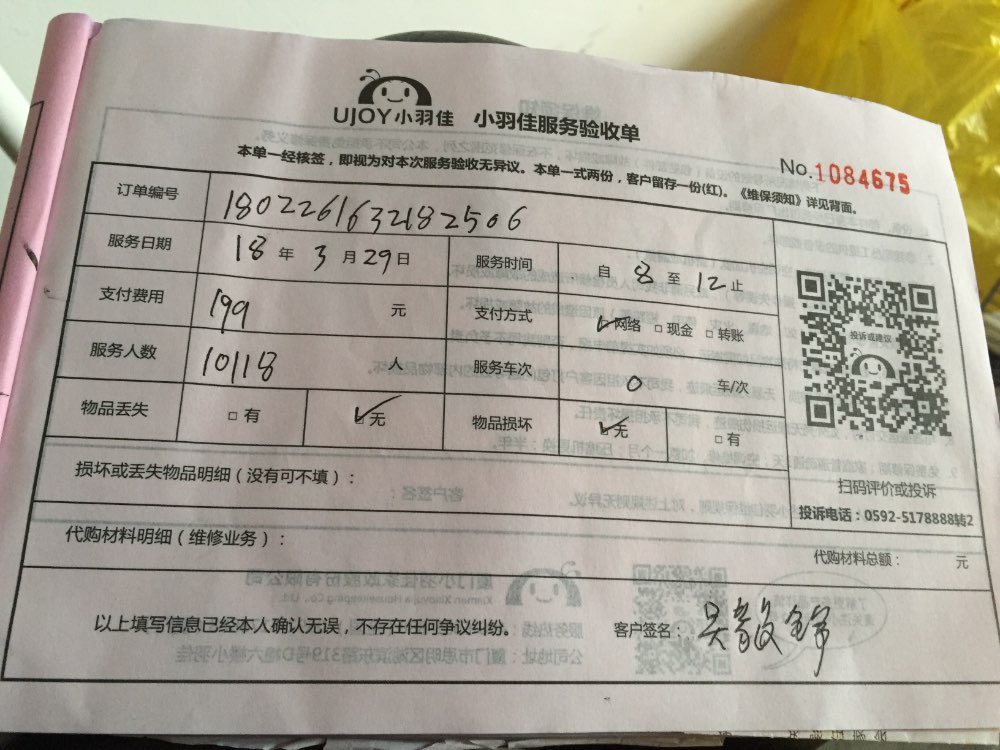 UJOY小羽佳 小羽佳服务验收单
No.1084675
本单一经核签，即视为对本次服务验收无异议。本单一式两份，客户留存一份(红)。《维保须知》详见背面。
订单编号 180226163218 2506
服务日期 18年3月29日 服务时间 自8至12止
支付费用 199元 支付方式 ☑网络 □现金 □转账
服务人数 10118人 服务车次 0车/次
物品丢失 □有 ☑无 物品损坏 ☑无 □有
投诉或建议
扫码评价或投诉
投诉电话：0592-5178888转2
损坏或丢失物品明细（没有可不填）：
代购材料明细（维修业务）： 代购材料总额： 元
以上填写信息已经本人确认无误，不存在任何争议纠纷。 客户签名：吴毅锋